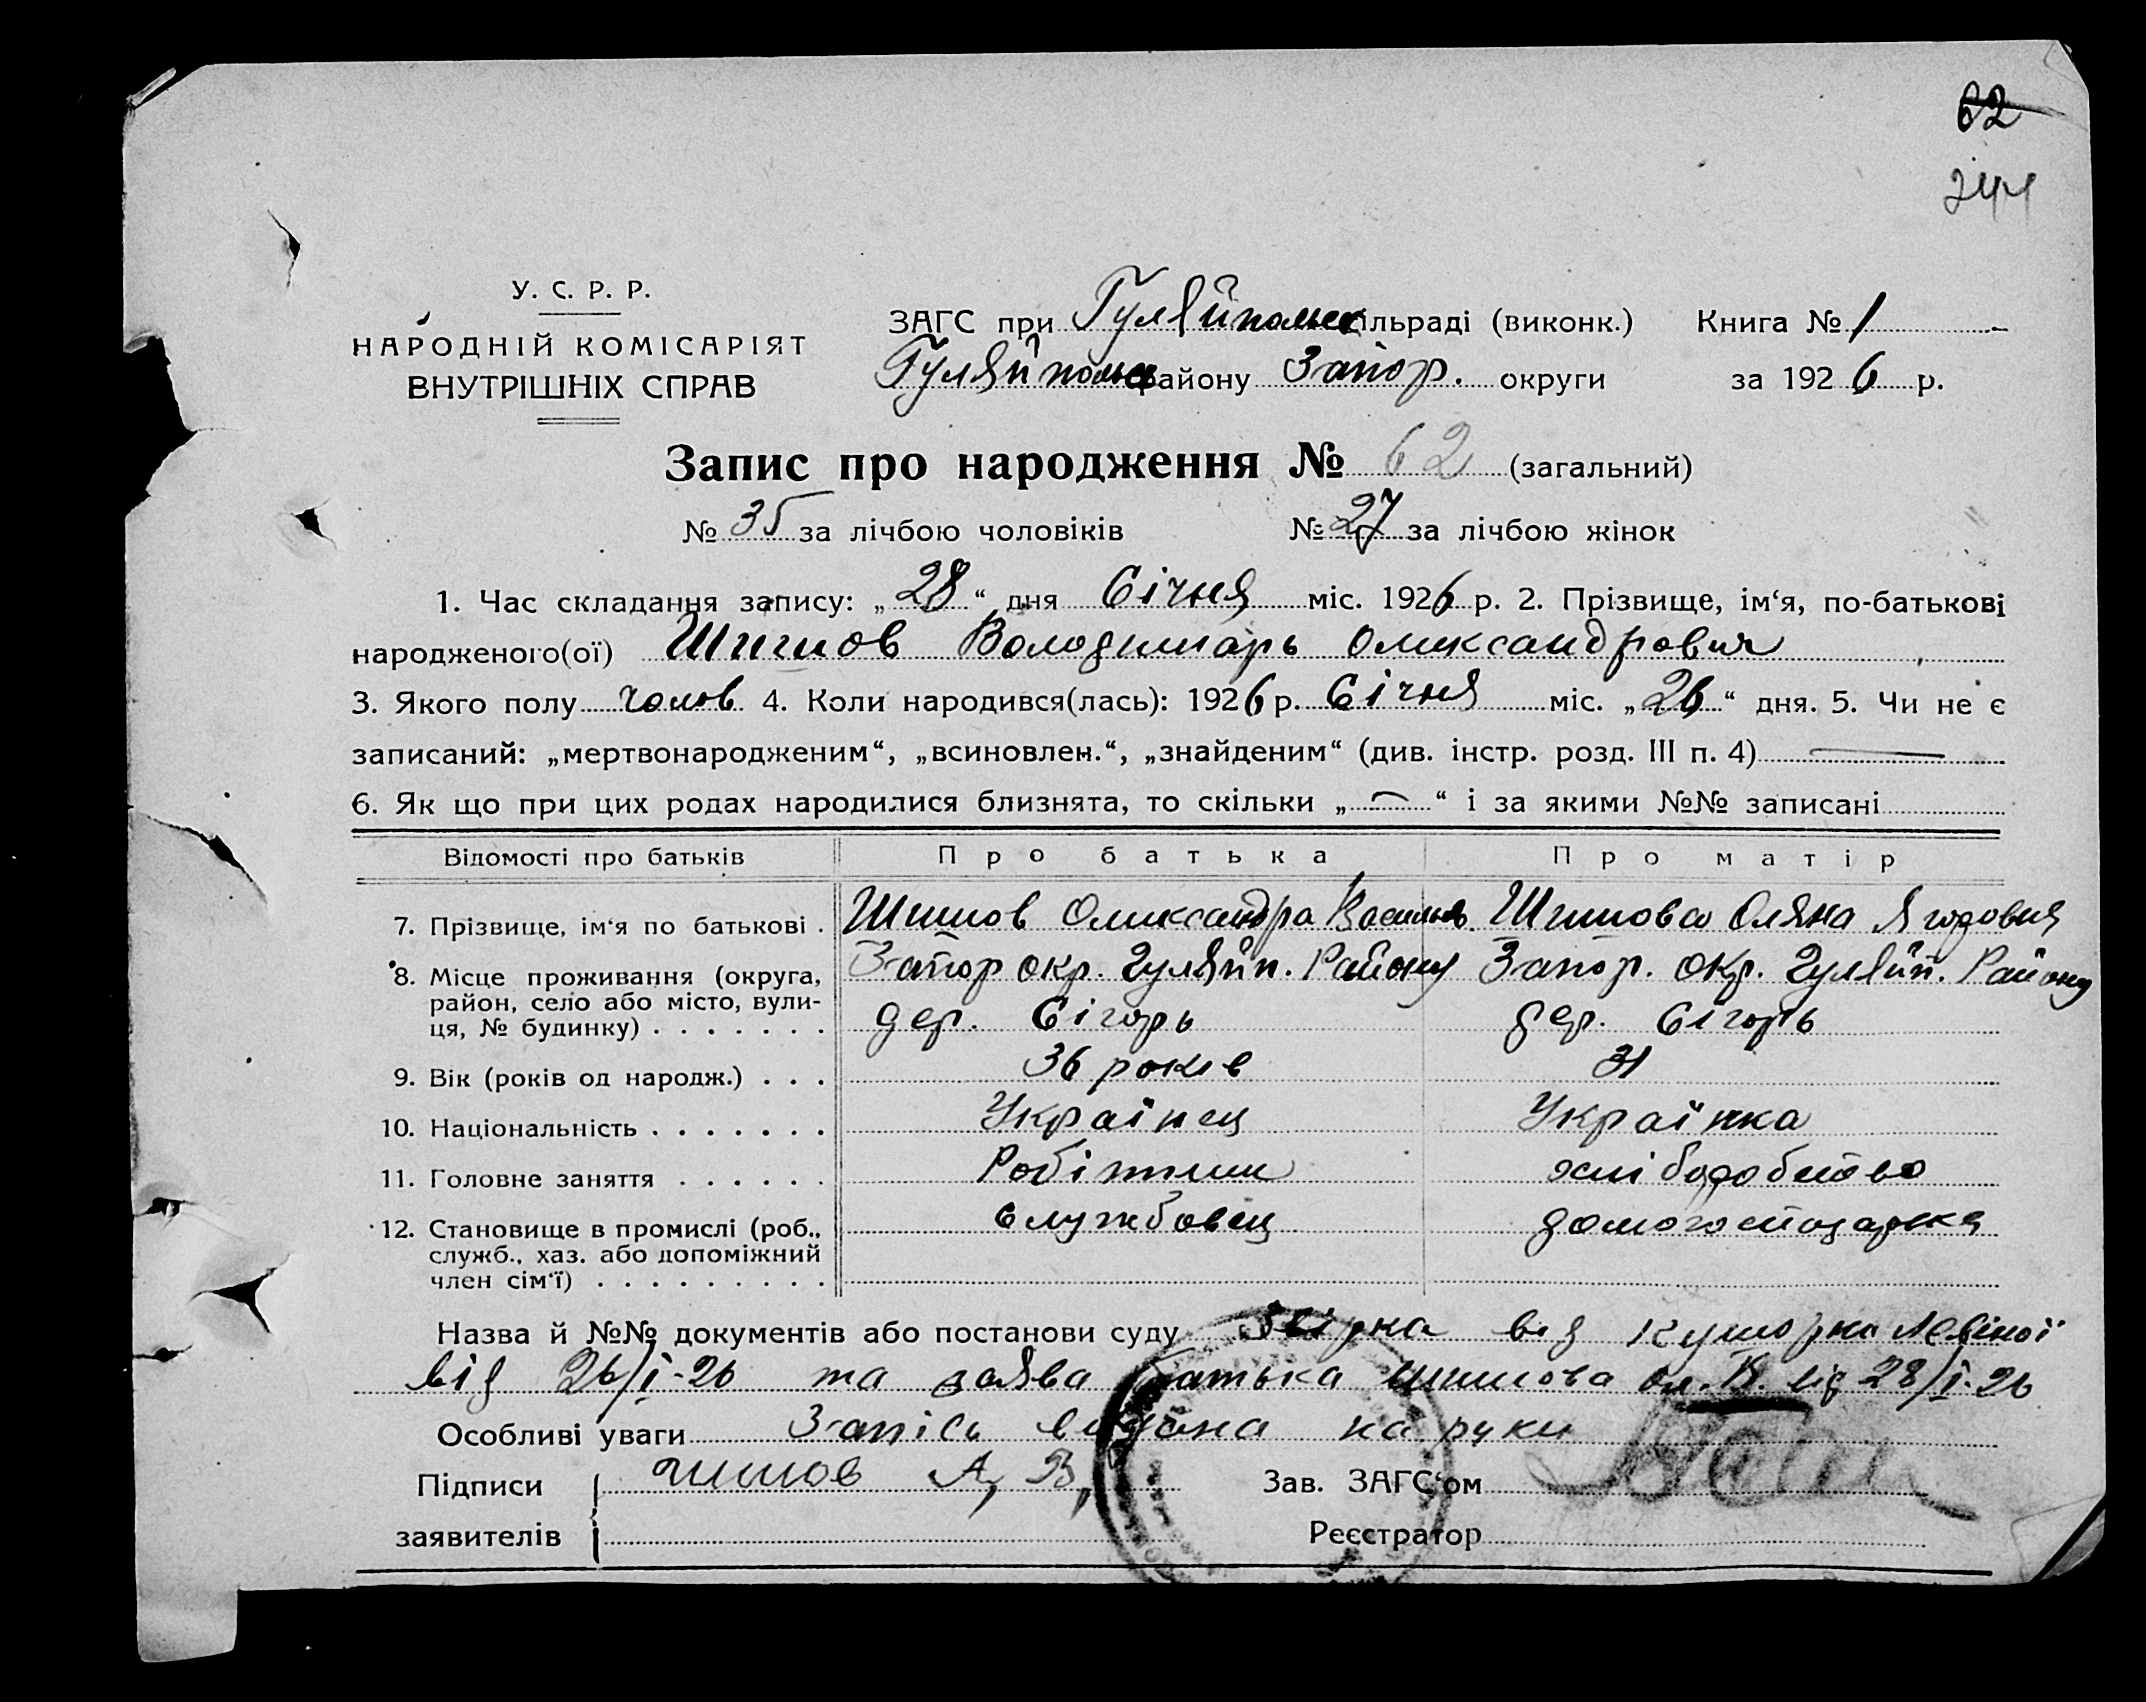 62
244
У. С. Р. Р.
НАРОДНІЙ КОМІСАРІЯТ
ВНУТРІШНІХ СПРАВ
ЗАГС при Гуляйпольс сільраді (виконк.) Книга № 1
Гуляйпольс району Запор. округи за 1926 р.
Запис про народження № 62 (загальний)
№ 35 за лічбою чоловіків № 27 за лічбою жінок
1. Час складання запису: „28“ дня Січня міс. 1926 р. 2. Прізвище, ім‘я, по-батькові
народженого(ої) Шишов Володимарь Олександрович
3. Якого полу чолов 4. Коли народився(лась): 1926 р. Січня міс. „26“ дня. 5. Чи не є
записаний: „мертвонародженим“, „всиновлен.“, „знайденим“ (див. інстр. розд. III п. 4) —
6. Як що при цих родах народилися близнята, то скільки „—“ і за якими №№ записані
Відомості про батьків Про батька Про матір
7. Прізвище, ім‘я по батькові . Шишов Олександра Васильев. Шишова Оляна Ягоровня
8. Місце проживання (округа, Запор окр. Гуляйп. Району Запор. окр. Гуляйп. Району
район, село або місто, вули-
ця, № будинку) . . . . . . . дер. Сігорь дер. Сігорь
9. Вік (років од народж.) . . . 36 років 31
10. Національність . . . . . . . Українец Українка
11. Головне заняття . . . . . . Робітник хліборобство
12. Становище в промислі (роб., Службовец домогосподарка
служб., хаз. або допоміжний
член сім‘ї) . . . . . . . . .
Назва й №№ документів або постанови суду від
від 26/I-26 та заява батька Шишова Ол. В. від 28/I-26
Особливі уваги Запісь видана на руки
Підписи Шишов А, В, Зав. ЗАГС‘ом
заявителів Реєстратор